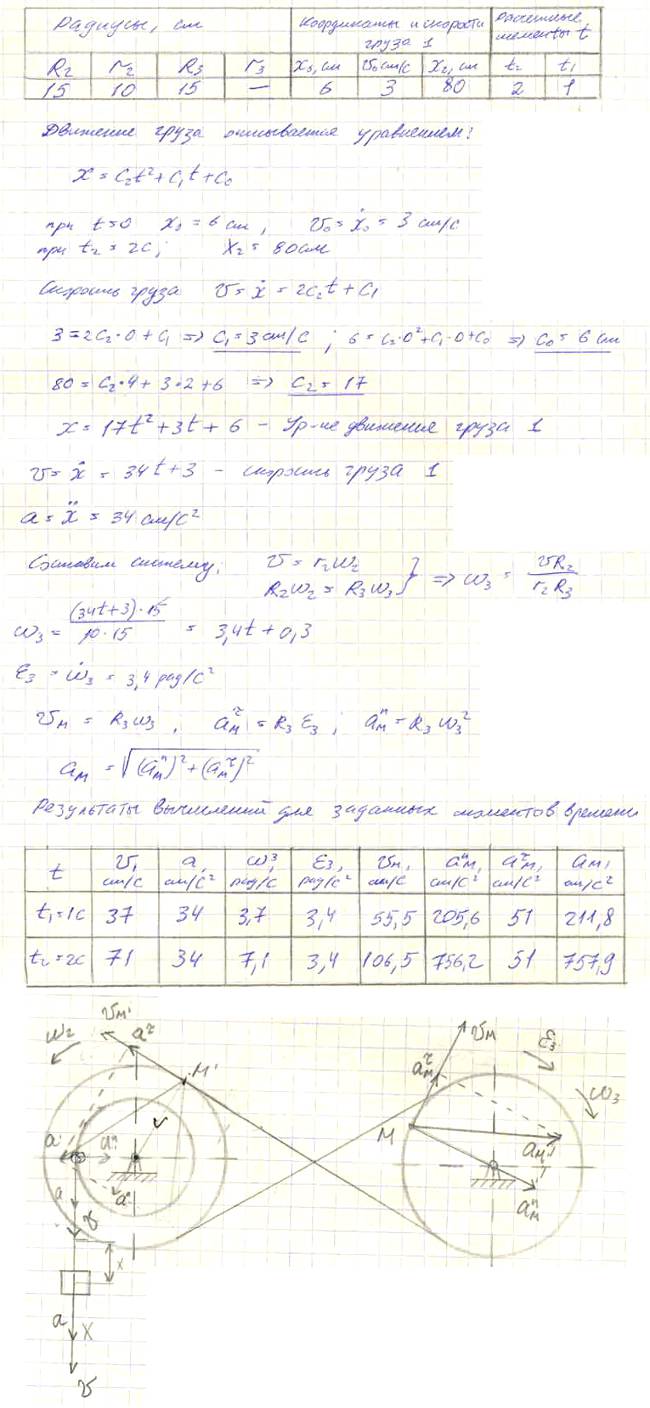 Радиусы, см Координаты и скорости груза 1 Расчетные моменты t
R₂ r₂ R₃ r₃ x₀, см v₀ см/с x₂, см t₂ t₁
15 10 15 — 6 3 80 2 1
Движение груза описывается уравнением:
x = C₂t² + C₁t + C₀
при t=0 x₀ = 6 см, v₀ = ẋ₀ = 3 см/с
при t₂ = 2с; x₂ = 80см
Скорость груза v = ẋ = 2C₂t + C₁
3 = 2C₂·0 + C₁ => C₁ = 3 см/с ; 6 = C₂·0² + C₁·0 + C₀ => C₀ = 6 см
80 = C₂·4 + 3·2 + 6 => C₂ = 17
x = 17t² + 3t + 6 – Ур-ие движения груза 1
v = ẋ = 34t + 3 – скорость груза 1
a = ẍ = 34 см/с²
Составим систему: v = r₂ω₂
R₂ω₂ = R₃ω₃ } => ω₃ = vR₂ / r₂R₃
ω₃ = (34t+3)·15 / 10·15 = 3,4t + 0,3
ε₃ = ω̇₃ = 3,4 рад/с²
vм = R₃ω₃ , aᵗм = R₃ε₃ ; aⁿм = R₃ω₃²
aм = √(aⁿм)² + (aᵗм)²
Результаты вычислений для заданных моментов времени
t v, см/с a, см/с² ω3, рад/с ε₃, рад/с² vм, см/с aⁿм, см/с² aᵗм, см/с² aм, см/с²
t₁=1с 37 34 3,7 3,4 55,5 205,6 51 211,8
t₂=2с 71 34 7,1 3,4 106,5 756,2 51 757,9
vм'
ω₂ aᵗ
M'
a
a
v
x
a X
v
vм
ε₃
aᵗм
ω₃
M
aм
aⁿм